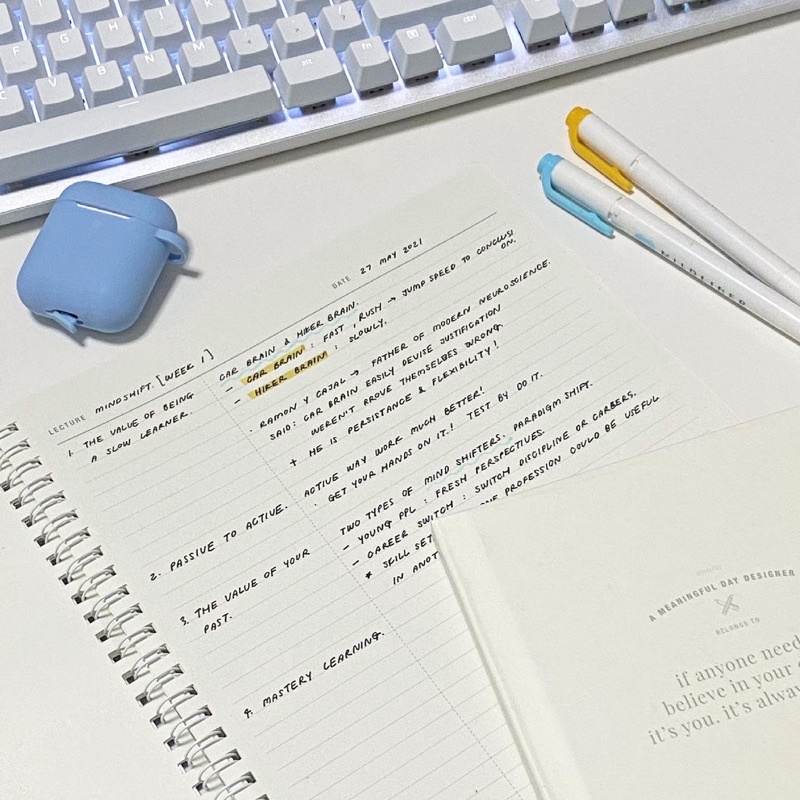 DATE 27 MAY 2021
LECTURE MINDSHIFT. [WEEK 1]
1. THE VALUE OF BEING
A SLOW LEARNER.
CAR BRAIN & HIKER BRAIN.
- CAR BRAIN : FAST, RUSH → JUMP SPEED TO CONCLUSI
ON.
- HIKER BRAIN : SLOWLY.
. RAMON Y CAJAL → FATHER OF MODERN NEUROSCIENCE.
SAID: CAR BRAIN EASILY DEVISE JUSTIFICATION
WEREN'T PROVE THEMSELVES WRONG.
+ HE IS PERSISTANCE & FLEXIBILITY!
2. PASSIVE TO ACTIVE.
ACTIVE WAY WORK MUCH BETTER!
. GET YOUR HANDS ON IT! TEST BY DO IT.
3. THE VALUE OF YOUR
PAST.
TWO TYPES OF MIND SHIFTERS. PARADIGM SHIFT.
- YOUNG PPL : FRESH PERSPECTIVES.
- CAREER SWITCH : SWITCH DISCIPLINE OR CAREERS.
* SKILL SET PROFESSION COULD BE USEFUL
IN ANOT
4. MASTERY LEARNING.
A MEANINGFUL DAY DESIGNER
BELONGS TO
if anyone need
believe in your
it's you. it's alwa
MILDLINER
alt
fn
ctrl
F
G
H
J
K
L
C
V
B
N
M